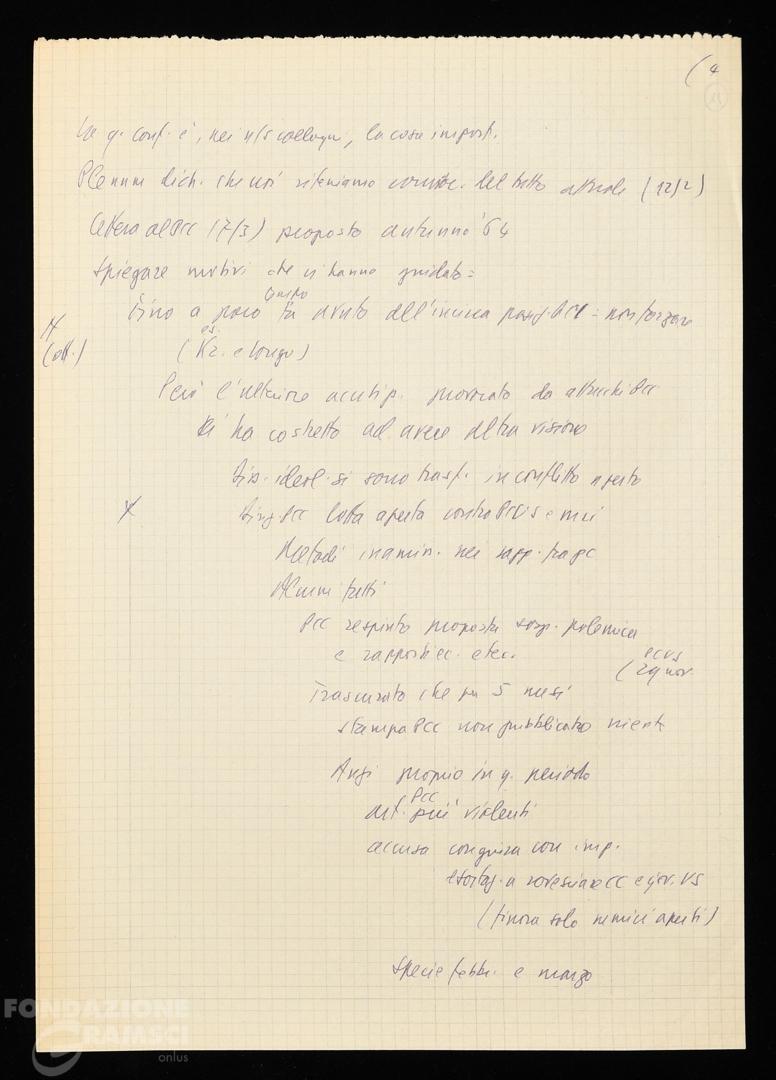 (4
La q. conf. è, nei n/s colloqui, la cosa import.
Plenum dich. che noi riteniamo convoc. del tutto attuale (12/2)
Lettera al PCC (7/3) proposto autunno '64
Spiegare motivi che ci hanno guidato =
Fino a poco tempo fa avuto dall'inizio = non forzare
(es. Kr. e Longo)
Però l'ulteriore acutiz. provocato da attacchi PCC
ci ha costretto ad avere altra visione
Div. ideol. si sono trasf. in conflitto aperto
X
dirig. PCC lotta aperta contro PCUS e noi
Metodi inamm. nei rapp. tra PC
Alcuni fatti
PCC respinto proposta sosp. polemica
e rapporti ec. etec. (PCUS 29 nov.
Trascurato che per 5 mesi
stampa PCC non pubblicato niente
Anzi proprio in q. periodo
art. PCC più violenti
accusa congiura con imp.
esortaz. a rovesciare CC e gov. US
(finora solo nemici aperti)
specie febbr. e marzo
FONDAZIONE
GRAMSCI
onlus